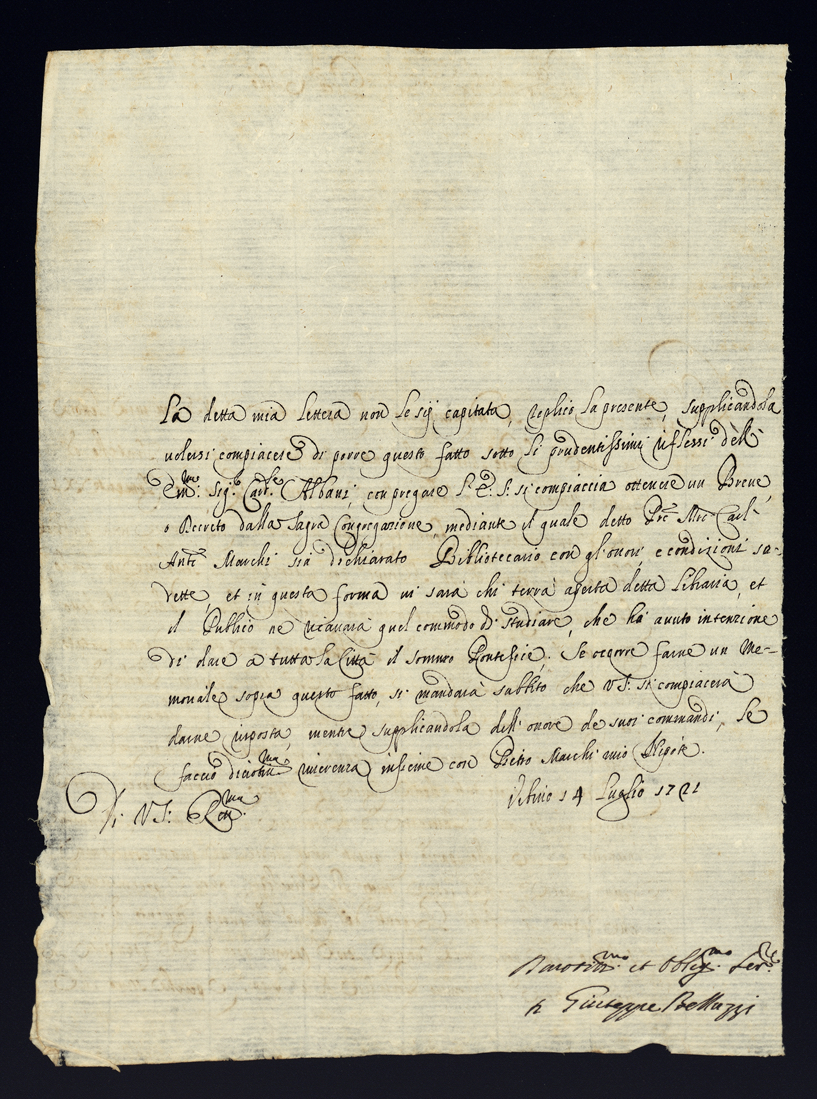 La detta mia lettera non le sij capitata, replico la presente, supplicandola
volersi compiacere di porre questo fatto sotto li prudentissimi riflessi dell'
Em.mo Sig.r Card.le Albani, con pregare S. E. S. si compiaccia ottenere un Breve,
o Decreto dalla Sagra Congregazione, mediante il quale detto Pre. Mro. Carl'
Ant.o Marchi sia dichiarato Bibliotecario con gl'onori, e condizioni su-
dette, et in questa forma vi sarà chi terrà aperta detta Libraria, et
il Publico ne ricavarà quel commodo di studiare, che hà avuto intenzione
di dare a tutta la Città il sommo Pontefice. Se ocorre farne un Me-
moriale sopra questo fatto, si mandarà subbito che V.S. si compiacerà
darne risposta, mentre supplicandola dell'onore de suoi commandi, Le
faccio divotis.ma riverenza insieme con Pietro Marchi mio Nipote.
Di V.S. R.ma
Urbino 14 Luglio 1721
Divotiss.mo et Oblig.mo Ser.re
Giuseppe Belluzzi